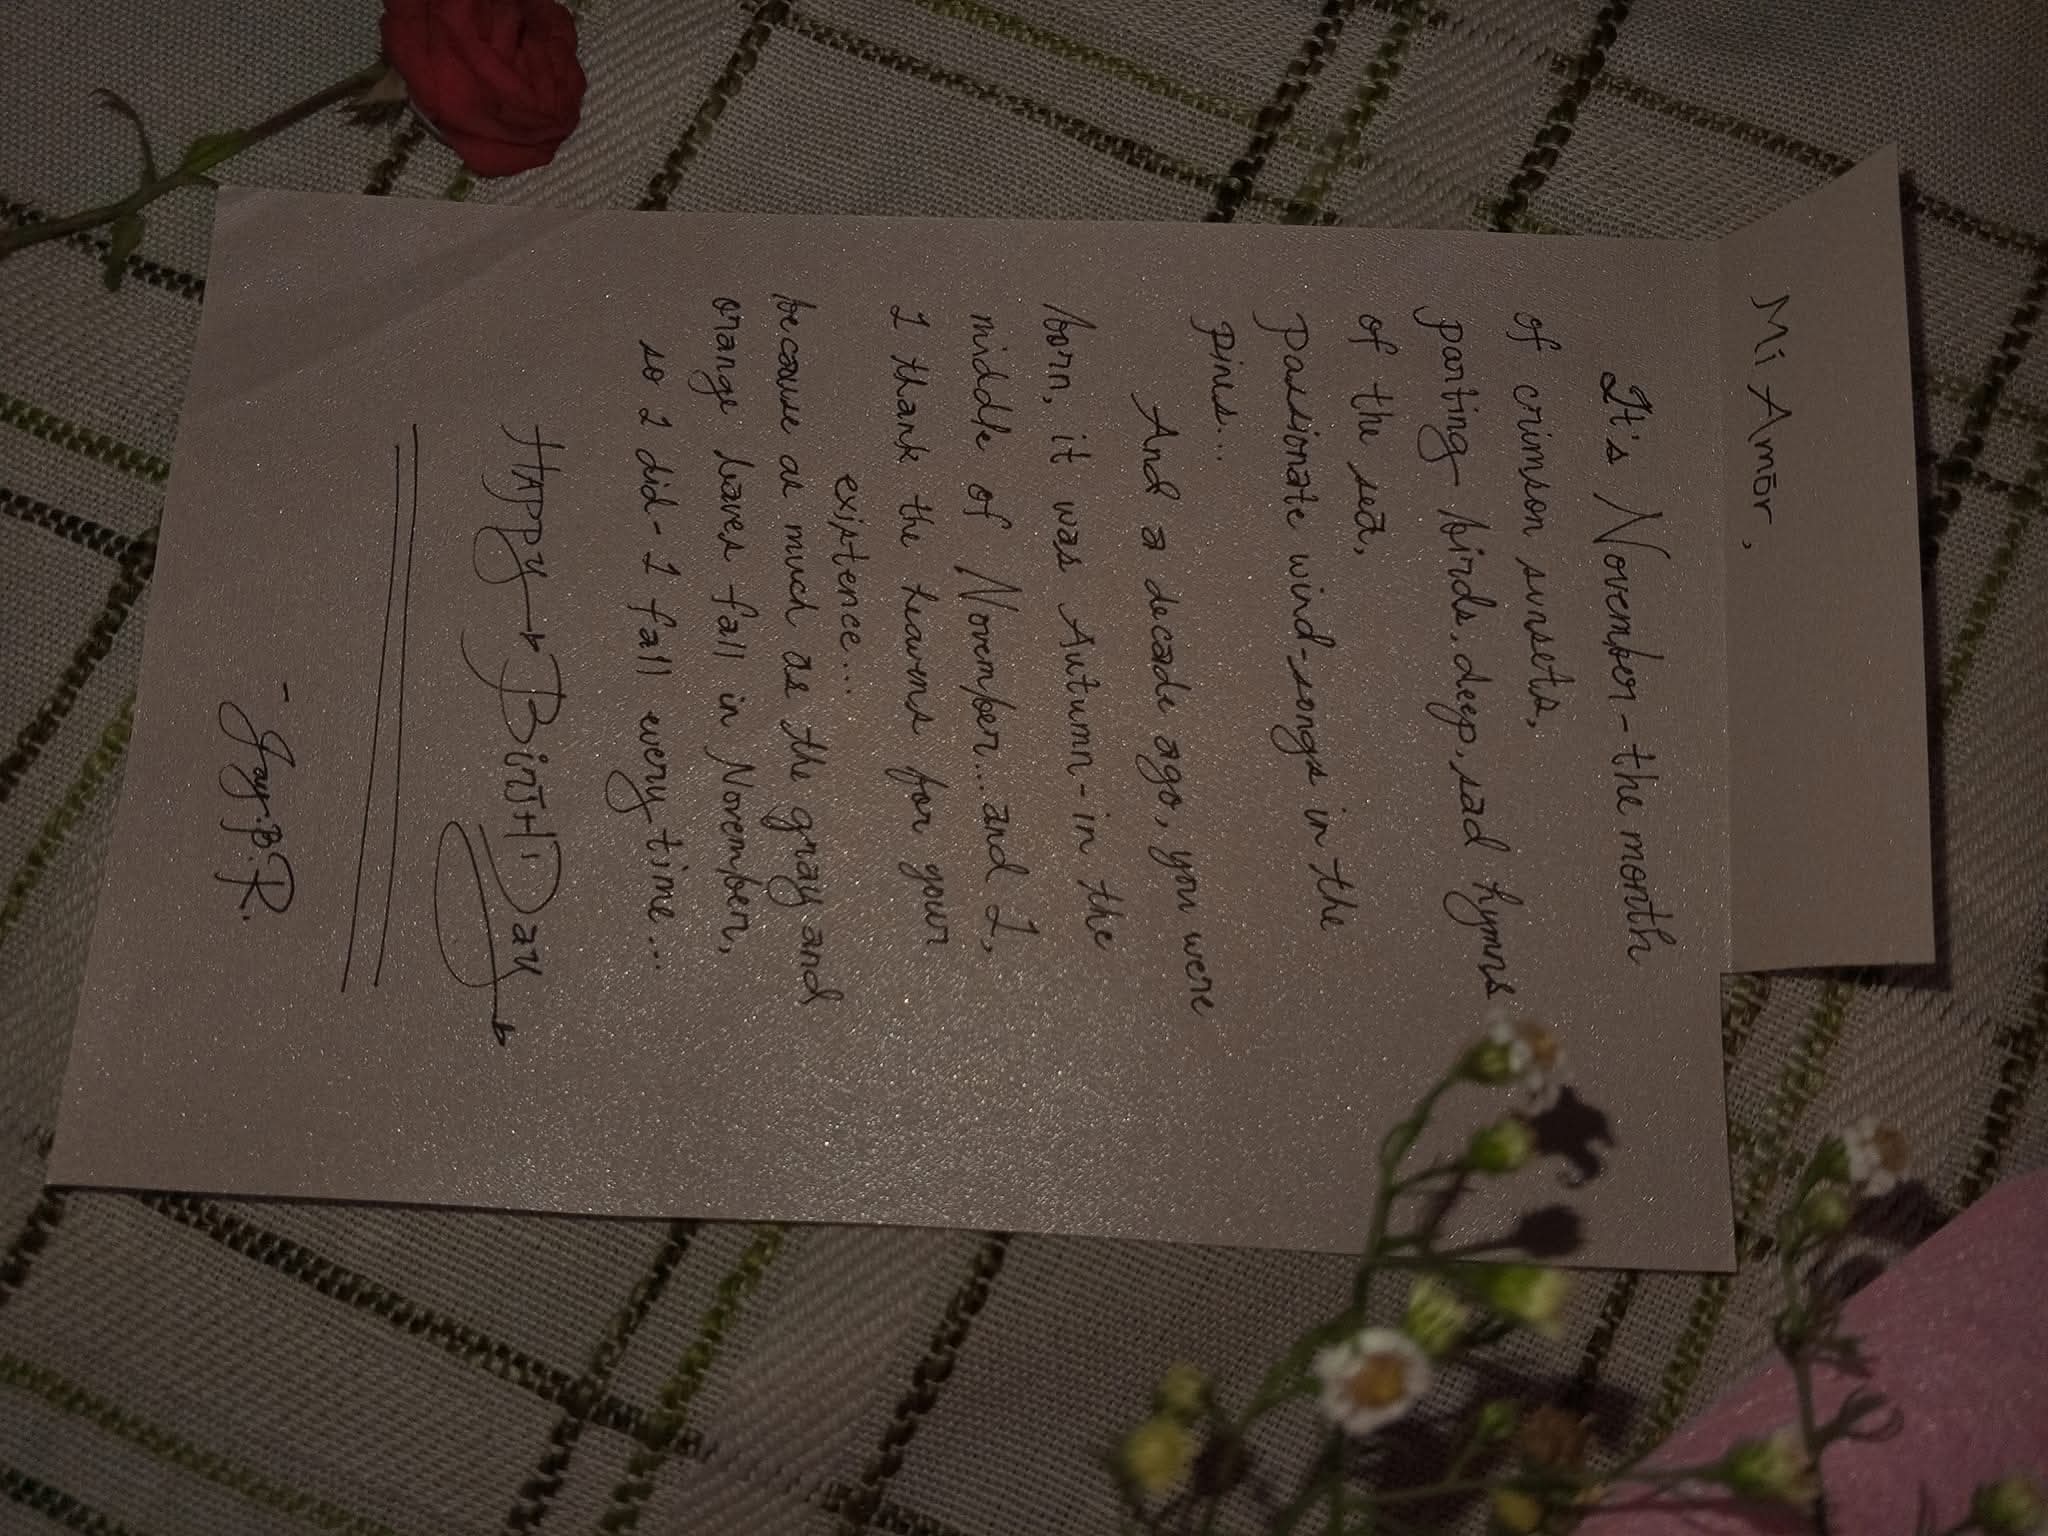 Mi Amor,
It's November - the month
of crimson sunsets,
parting-birds, deep, sad hymns
of the sea,
passionate wind-songs in the
pines...
And a decade ago, you were
born, it was Autumn - in the
middle of November... and I,
I thank the heavens for your
existence...
because as much as the gray and
orange leaves fall in November,
so I did - I fall every time...
Happy Birth Day
- Jay.B.R.